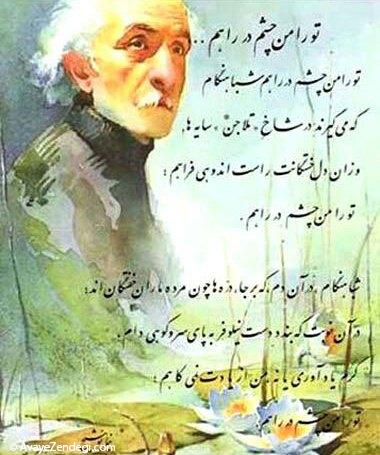 تو را من چشم در راهم ..
تو را من چشم در راهم شباهنگام
که می گیرند در شاخ «تلاجن» سایه ها،
وزان دل خستگانت راست اندوهی فراهم؛
تو را من چشم در راهم.
شباهنگام، در آن دم، که بر جا، دره ها چون مرده ماران خفتگان اند؛
در آن نوبت که بندد دست نیلوفر به پای سرو کوهی دام،
گرم یاد آوری یا نه من از یادت نمی کاهم؛
تو را من چشم در راهم.
© AvayeZendegi.com